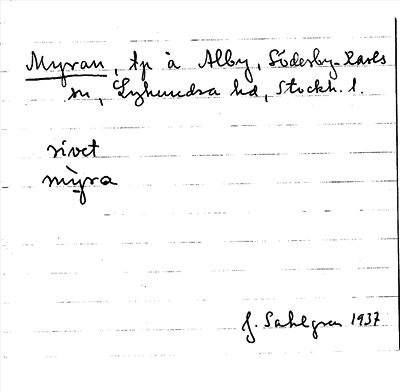 Myran, tp å Alby, Söderby-Karls
sn, Lyhundra hd, Stockh. l.
rivet
mỳra
J. Sahlgren 1937